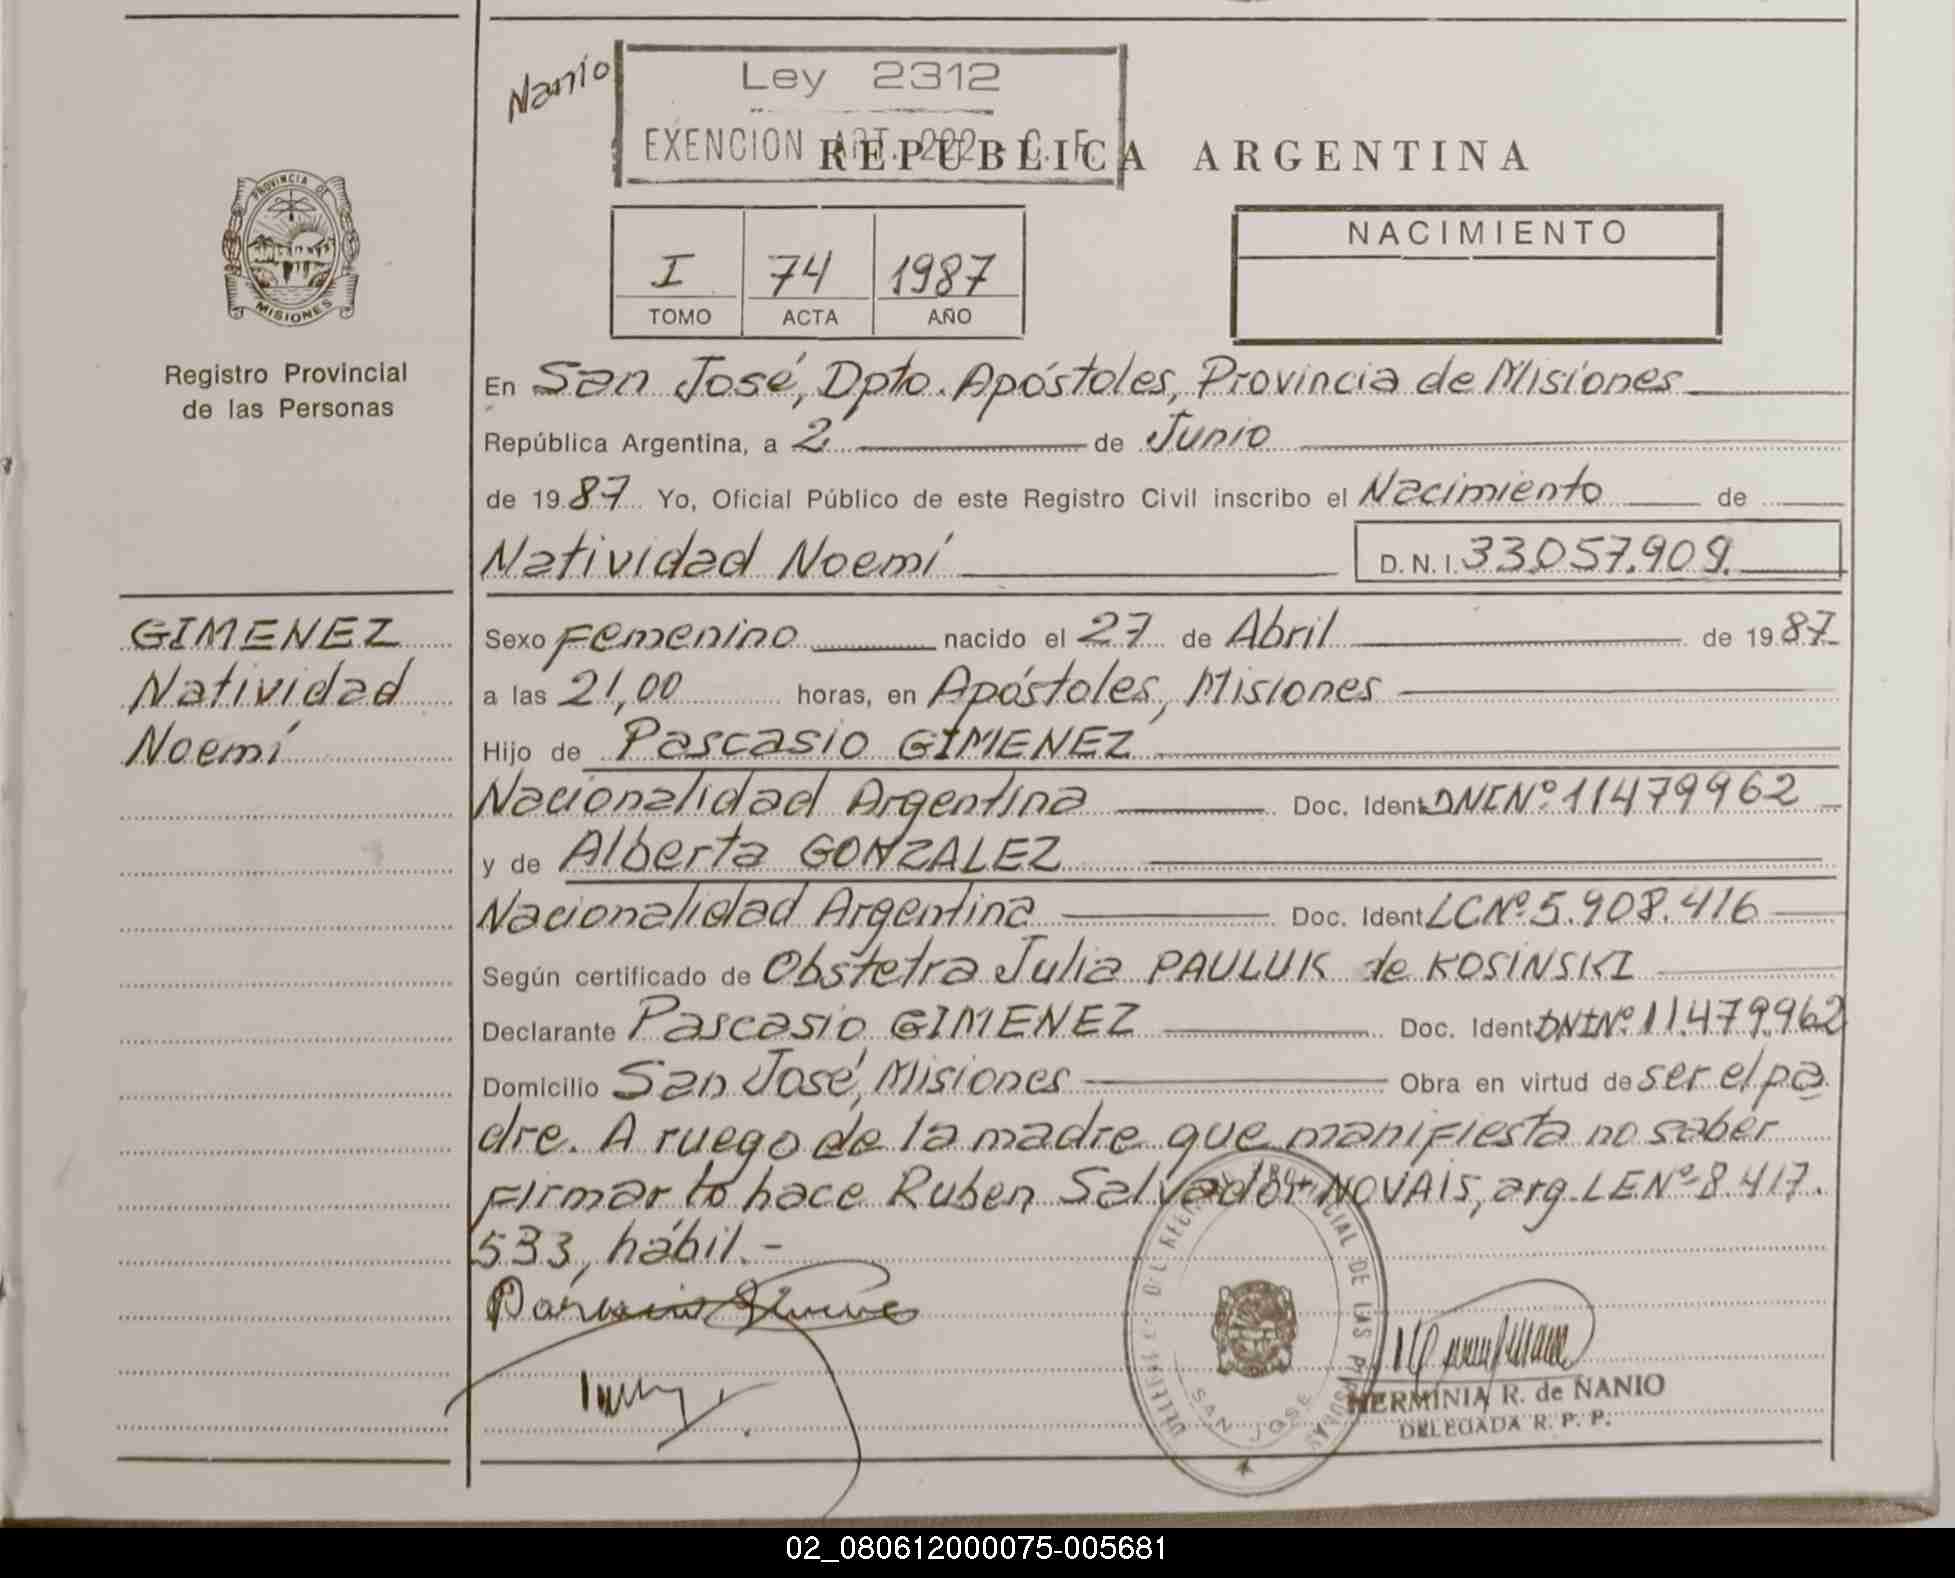 Nanio
Ley 2312
EXENCION ART. 202 C. F.
REPUBLICA ARGENTINA
PROVINCIA DE
MISIONES
I 74 1987
TOMO ACTA AÑO
NACIMIENTO
Registro Provincial
de las Personas
En San José, Dpto. Apóstoles, Provincia de Misiones
República Argentina, a 2 de Junio
de 1987 Yo, Oficial Público de este Registro Civil inscribo el Nacimiento de
Natividad Noemí D. N. I. 33.057.909.
GIMENEZ
Natividad
Noemí
Sexo Femenino nacido el 27 de Abril de 1987
a las 21,00 horas, en Apóstoles, Misiones
Hijo de Pascasio GIMENEZ
Nacionalidad Argentina Doc. Ident. DNI Nº 11479962
y de Alberta GONZALEZ
Nacionalidad Argentina Doc. Ident. LC Nº 5.908.416
Según certificado de Obstetra Julia PAULUK de KOSINSKI
Declarante Pascasio GIMENEZ Doc. Ident. DNI Nº 11.479.962
Domicilio San José, Misiones Obra en virtud de ser el pa
dre. A ruego de la madre que manifiesta no saber
firmar lo hace Ruben Salvador NOVAIS, arg. LE Nº 8.417.
533, hábil.-
REGISTRO PROVINCIAL DE LAS PERSONAS
SAN JOSE
HERMINIA R. de ÑANIO
DELEGADA R. P. P.
02_080612000075-005681